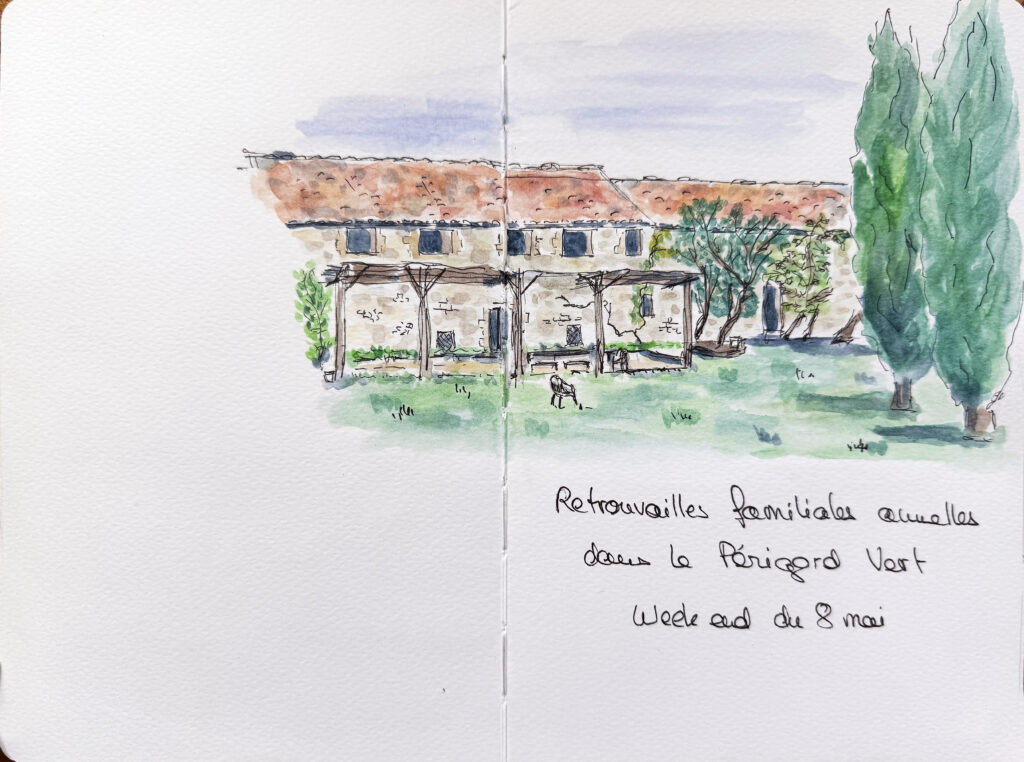 Retrouvailles familiales annuelles
dans le Périgord Vert
Week end du 8 mai